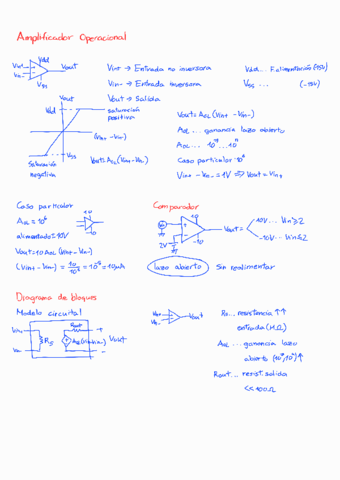 Amplificador Operacional
Vin+
Vin-
Vdd
Vout
Vss
Vin+ → Entrada no inversora
Vin- → Entrada inversora
Vout → Salida
Vdd... F. alimentación (+15V)
Vss ... (-15V)
Vout
Vdd
saturación
positiva
(Vin+ - Vin-)
Vss
Saturación
negativa
Vout = AOL (Vin+ - Vin-)
AOL ... ganancia lazo abierto
Caso particular
Vin+ - Vin- = 1V ⟹ Vout =
Caso particular
AOL = 10⁶
10
-10
alimentado ±10V
Vout = 10
(Vin+ - Vin-) = 10/10⁶ = 10⁻⁵ = 10µV
Comparador
10
-10
2V
Vout =
10V... Vin ≥ 2
-10V... Vin ≤ 2
lazo abierto
Sin realimentar
Diagrama de bloques
Modelo circuital
Vin+
Vin-
Rin
Rout
+
-
Vout
Vin+
Vin-
Vout
Rin... resistencia ↑↑
entrada (MΩ)
AOL ... ganancia lazo
abierto
Rout ... resist. salida
<< 100Ω